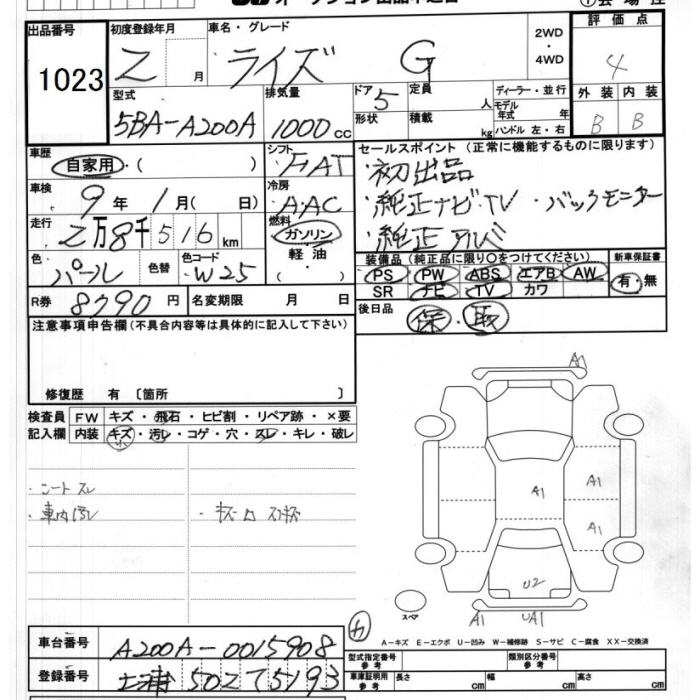 出品番号
1023
初度登録年月
2 月
車名・グレード
ライズ G
2WD
・
4WD
評価点
4
型式
5BA-A200A
排気量
1000 cc
ドア 5
形状
定員 人
積載 kg
ディーラー・並行
モデル年式 年
ハンドル 左・右
外装 内装
B B
車歴
自家用・( )
シフト
FAT
セールスポイント (正常に機能するものに限ります)
・初出品
・純正ナビTV ・バックモニター
・純正アルミ
車検
9 年 1 月( 日)
冷房
A・AC
走行
2万8千516 km
燃料
ガソリン
軽油
( )
色
パール
色替
色コード
W25
装備品 (純正品に限り○をつけてください)
新車保証書
PS PW ABS エアB AW
SR ナビ TV カワ
有・無
R券 8790 円
名変期限 月 日
後日品
保・取
注意事項申告欄(不具合内容等は具体的に記入して下さい)
修復歴 有 〔箇所 〕
検査員
記入欄
FW キズ・飛石・ヒビ割・リペア跡・×要
内装 キズ・汚レ・コゲ・穴・スレ・キレ・破レ
・シートスレ
・車内汚レ
A1
A1
A1
A1
U2
A1
UA1
スペア
A-キズ E-エクボ U-凹み W-補修跡 S-サビ C-腐食 XX-交換済
車台番号
A200A-0015908
登録番号
土浦 502 て 5193
型式指定番号
参考
類別区分番号
参考
車庫証明用
参考
長さ cm
幅 cm
高さ cm